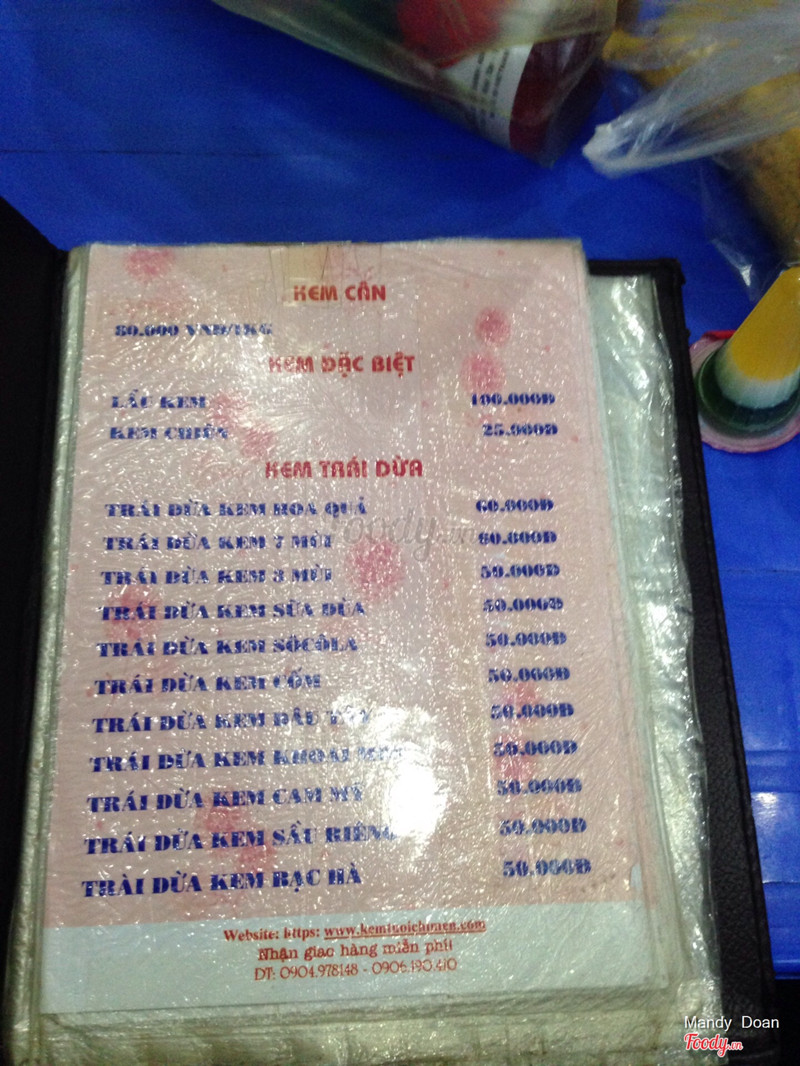 KEM CÂN
80.000 VNĐ/1KG
KEM ĐẶC BIỆT
LẨU KEM 100.000Đ
KEM CHIÊN 25.000Đ
KEM TRÁI DỪA
TRÁI DỪA KEM HOA QUẢ 60.000Đ
TRÁI DỪA KEM 7 MÙI 60.000Đ
TRÁI DỪA KEM 3 MÙI 50.000Đ
TRÁI DỪA KEM SỮA DỪA 50.000Đ
TRÁI DỪA KEM SÔCÔLA 50.000Đ
TRÁI DỪA KEM CỐM 50.000Đ
TRÁI DỪA KEM DÂU TÂY 50.000Đ
TRÁI DỪA KEM KHOAI MÔN 50.000Đ
TRÁI DỪA KEM CAM MỸ 50.000Đ
TRÁI DỪA KEM SẦU RIÊNG 50.000Đ
TRÀI DỪA KEM BẠC HÀ 50.000Đ
Website: https:
Nhận giao hàng miễn phí!
ĐT: 0904.978148 - 0906.190.410
Foody.vn
Mandy Doan
Foody.vn